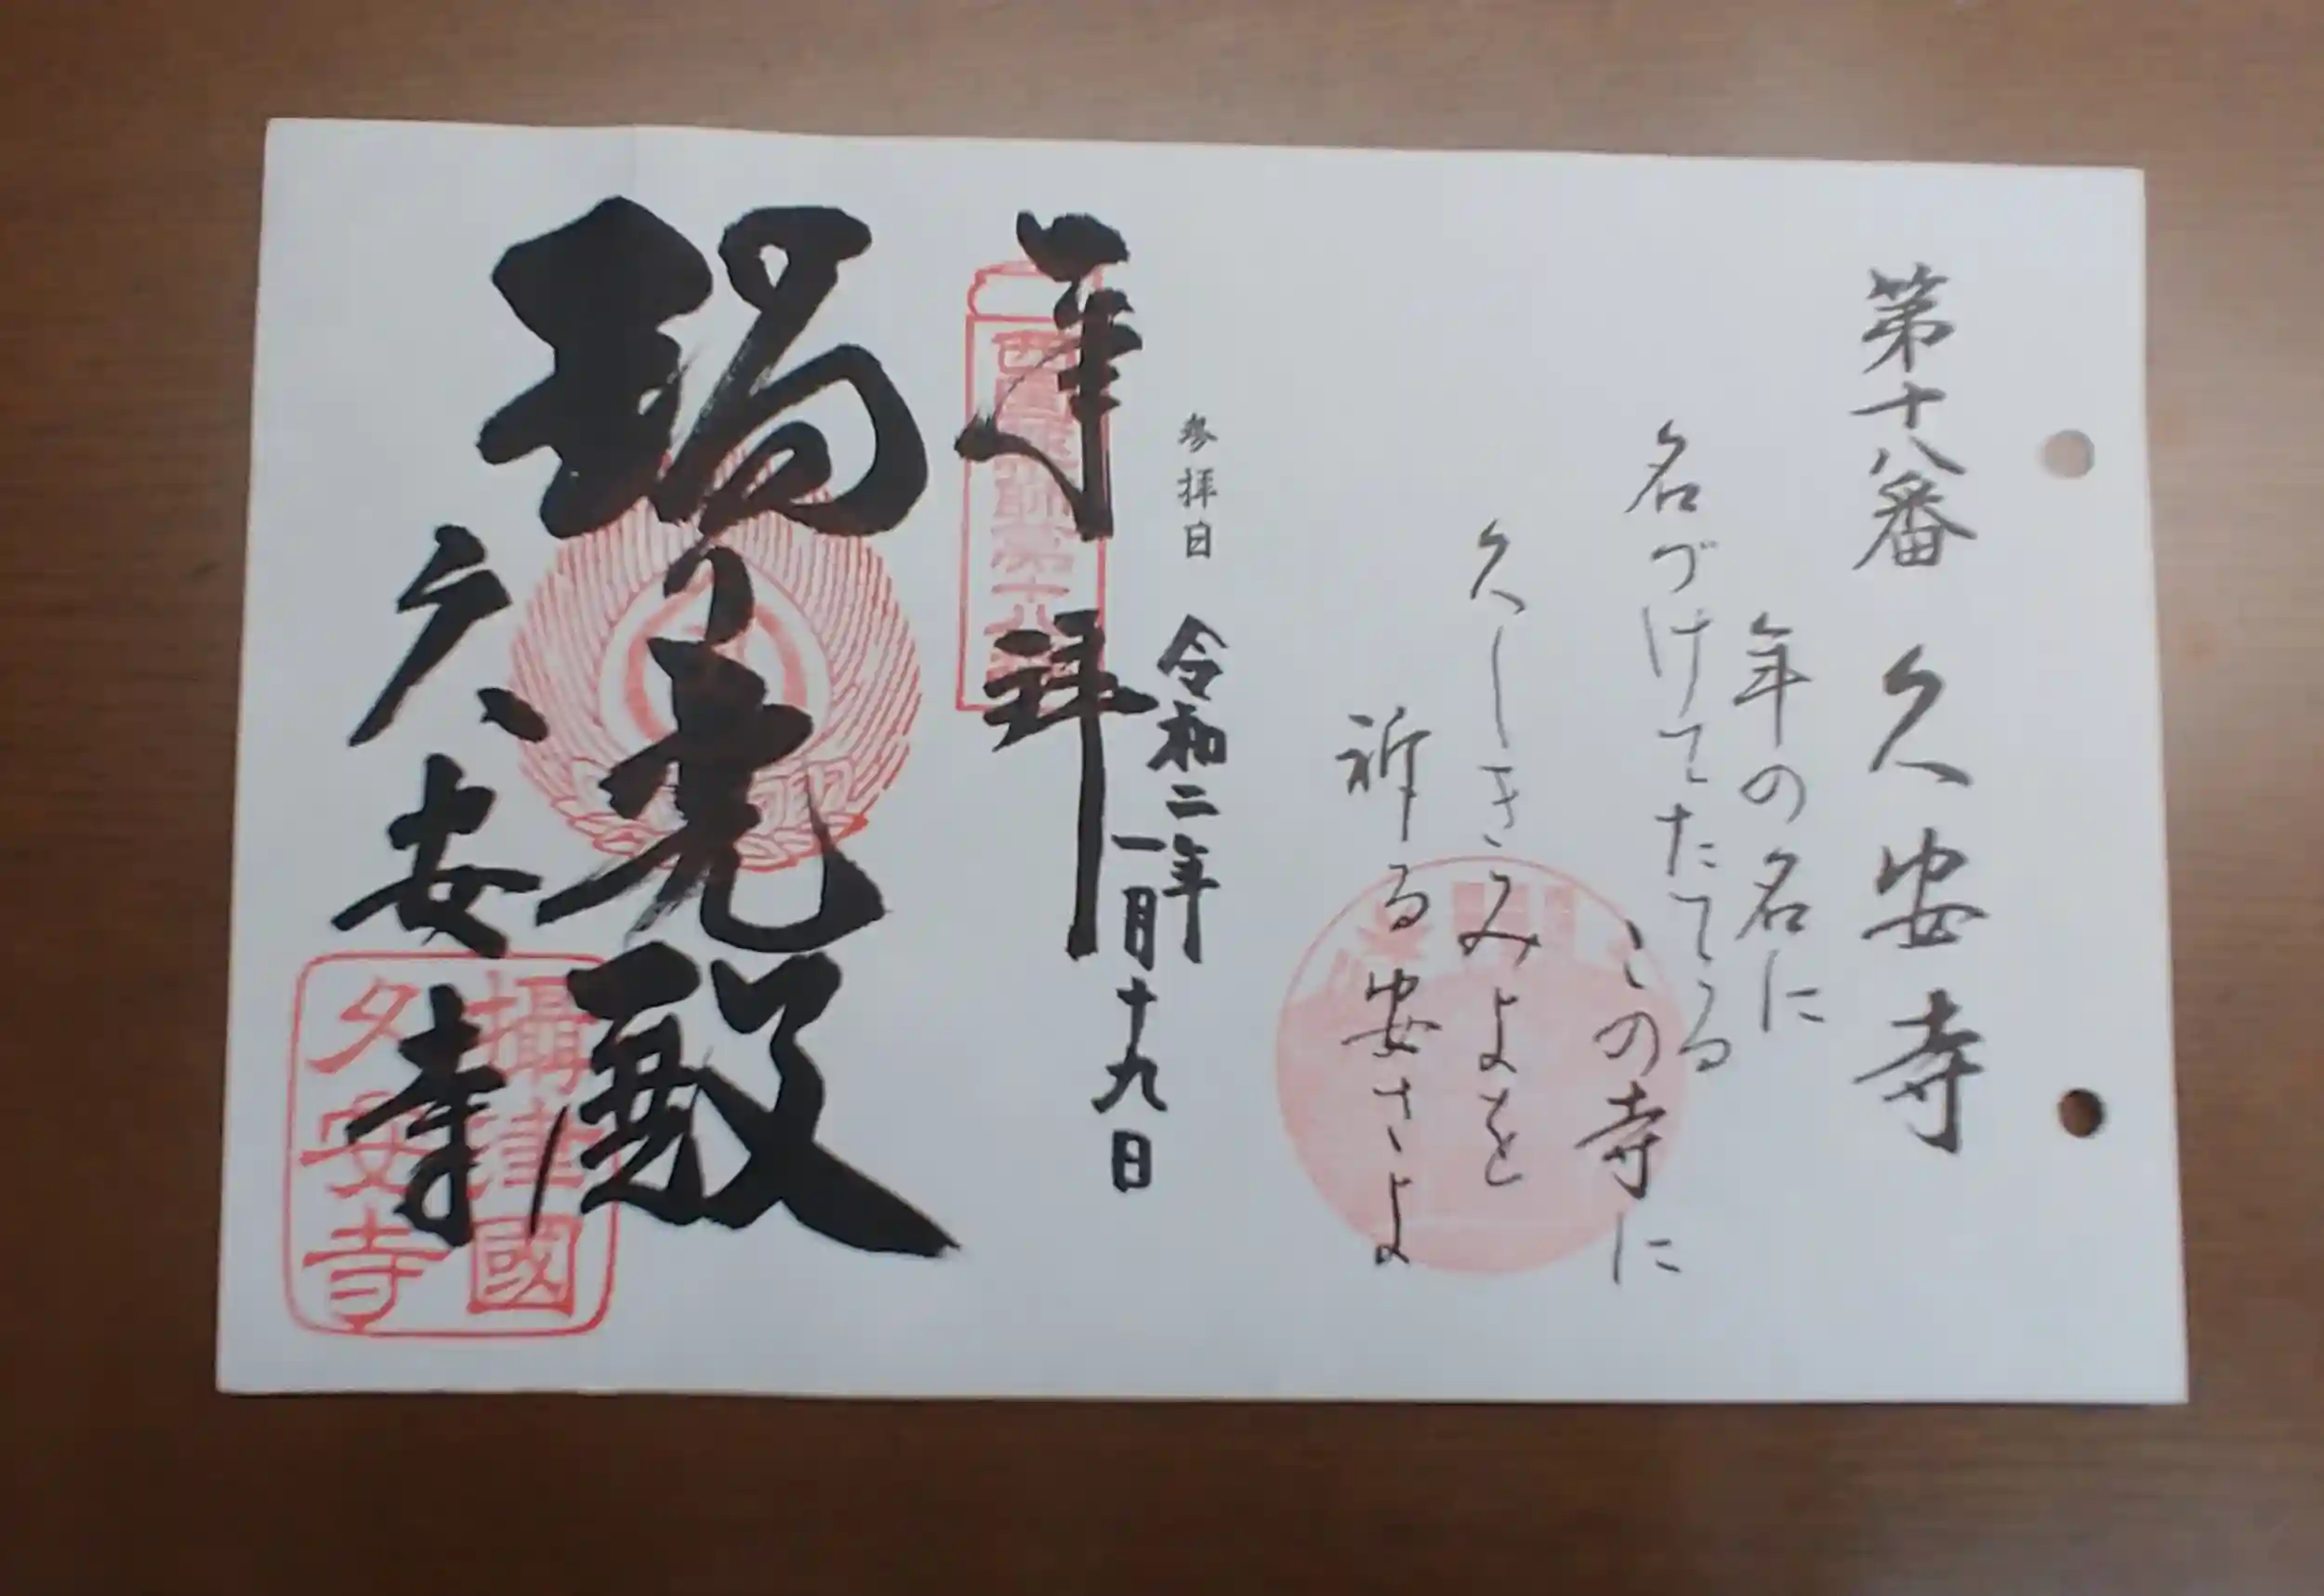 第十八番 久安寺
年の名に
名づけてたてる
この寺に
久しきみよを
祈る安さよ
参拝日 令和二年
一月十九日
奉拝
西國薬師第十八番
瑠り光殿
久安寺
攝津國
久安寺